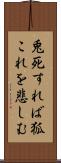 兎死すれば狐
これを悲しむ